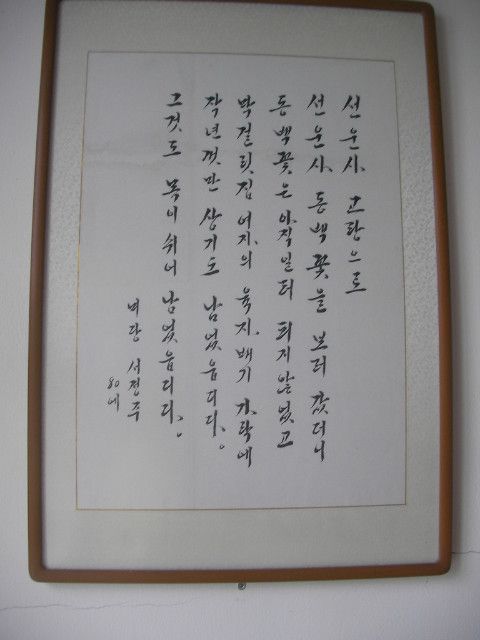 선운사 고랑으로
선운사 동백꽃을 보러 갔더니
동백꽃은 아직 일러 피지 않었고
막걸릿집 여자의 육자배기 가락에
작년것만 상기도 남었읍디다.
그것도 목이 쉬어 남었읍디다.
미당 서정주
80세